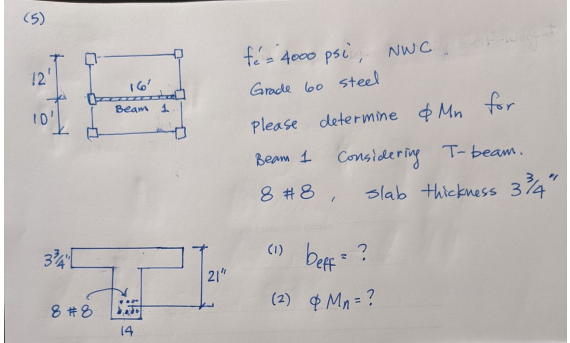 (5)
12'
10'
16'
Beam 1
fc' = 4000 psi, NWC
Grade 60 steel
please determine φMn for
Beam 1 Considering T-beam.
8 #8, slab thickness 3 3/4"
3 3/4"
21"
8 #8
14
(1) beff = ?
(2) φMn = ?